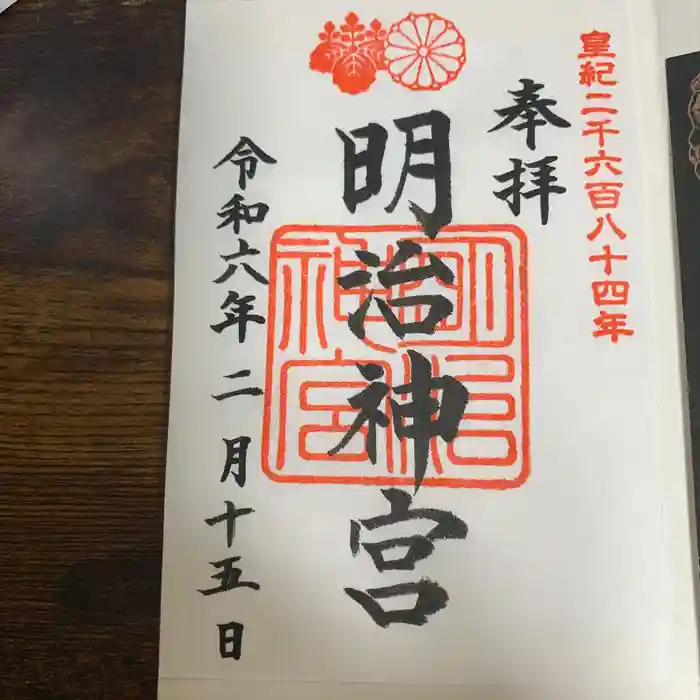 皇紀二千六百八十四年
奉拝
明治神宮
明治神宮
令和六年二月十五日